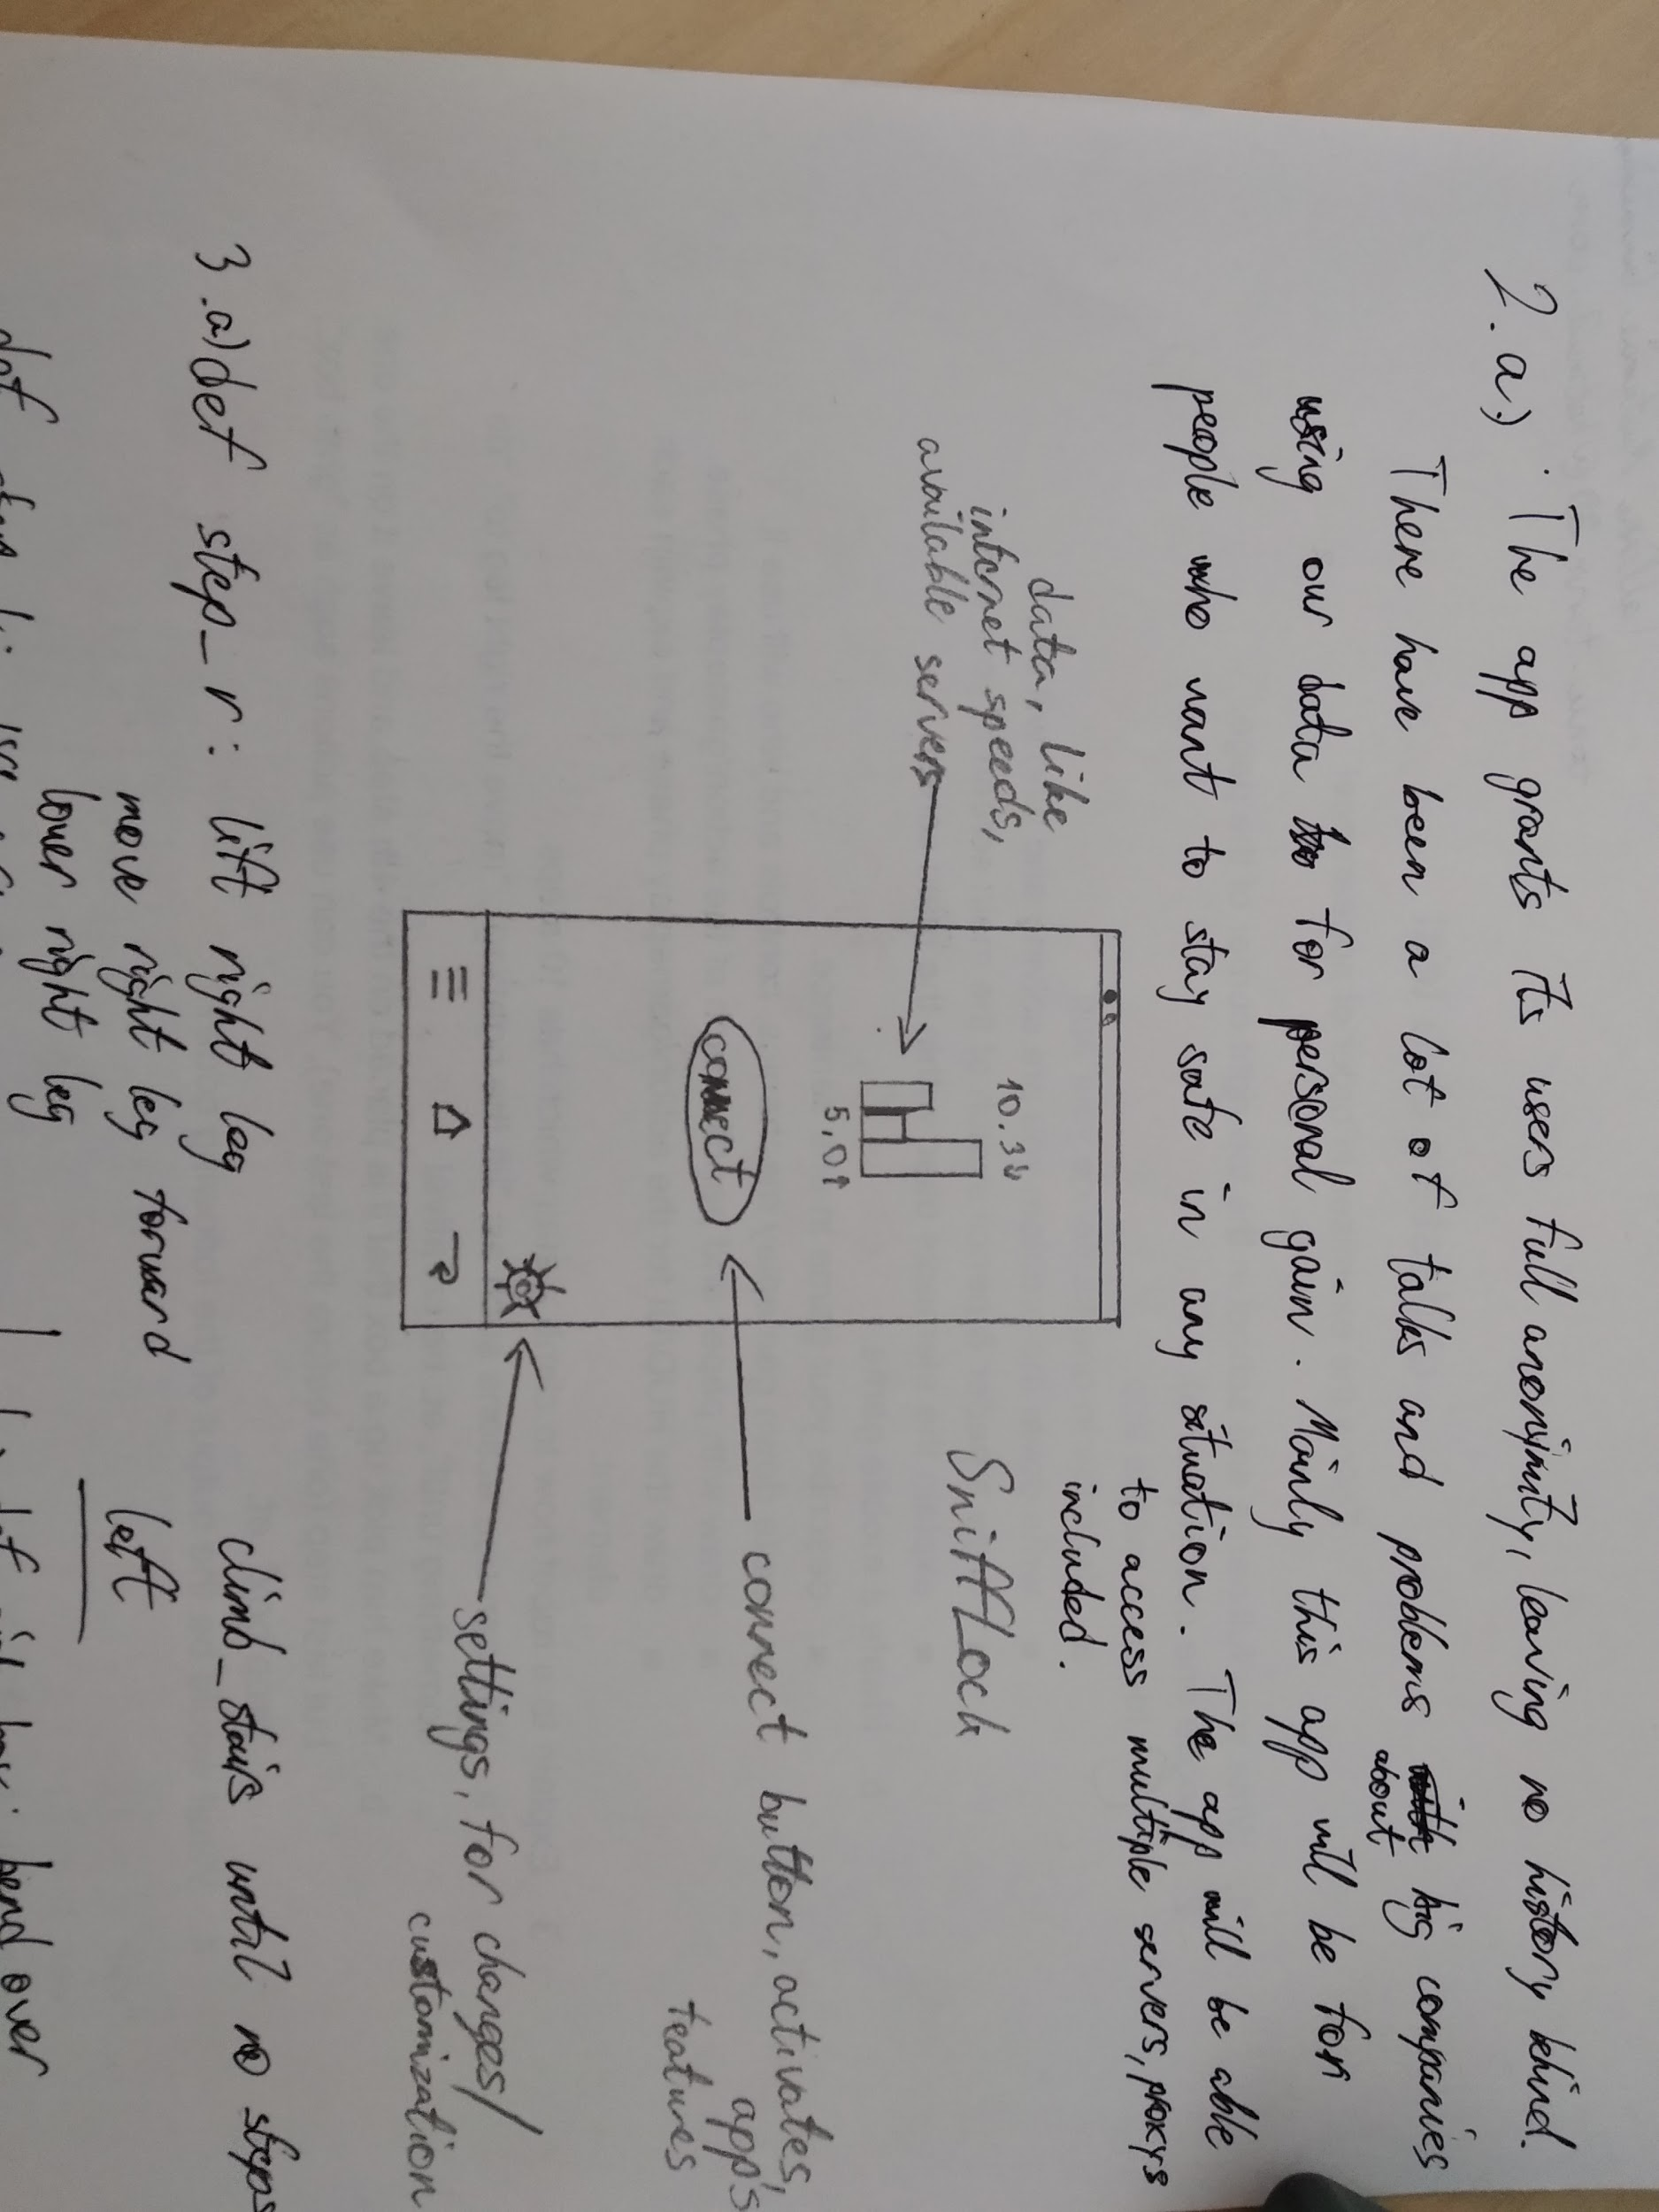 2. a) The app grants its users full anonymity, leaving no history behind.
There have been a lot of talks and problems about big companies
using our data for personal gain. Mainly this app will be for
people who want to stay safe in any situation. The app will be able
to access multiple servers, proxys
included.
SniffLock
data, like
internet speeds,
available servers
10.3↓
5.0↑
connect
connect button, activates,
app's
features
settings, for changes/
customization
3. a) def step_r: lift right leg
move right leg forward
lower right leg
climb_stairs until no steps
left
def
bend over